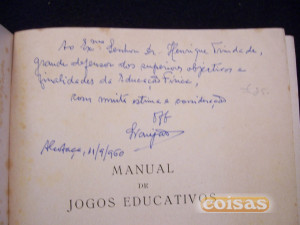 Ao Ex.mo Senhor Dr. Henrique Trindade,
grande defensor dos superiores objectivos e
finalidades da Educação Física,
com muita estima e consideração
Alcobaça, 21/9/960
MANUAL
DE
JOGOS EDUCATIVOS
coisas